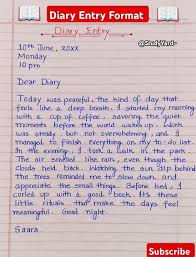 Diary Entry Format
Diary Entry
@StudyYard-
10th June, 20xx
Monday
10 pm
Dear Diary
Today was peaceful, the kind of day that
feels like a deep breath. I started my morning
with a cup of coffee, savoring the quiet
moments before the world woke up. Work
was steady but not overwhelming, and I
managed to finish everything on my to-do list.
In the evening, I took a walk in the park.
The air smelled like rain, even though the
clouds held back. Watching the sun dip behind
the trees reminded me to slow down and
appreciate the small things. Before bed, I
curled up with a good book. It's these
little rituals that make the days feel
meaningful. Good night.
Saara.
Subscribe